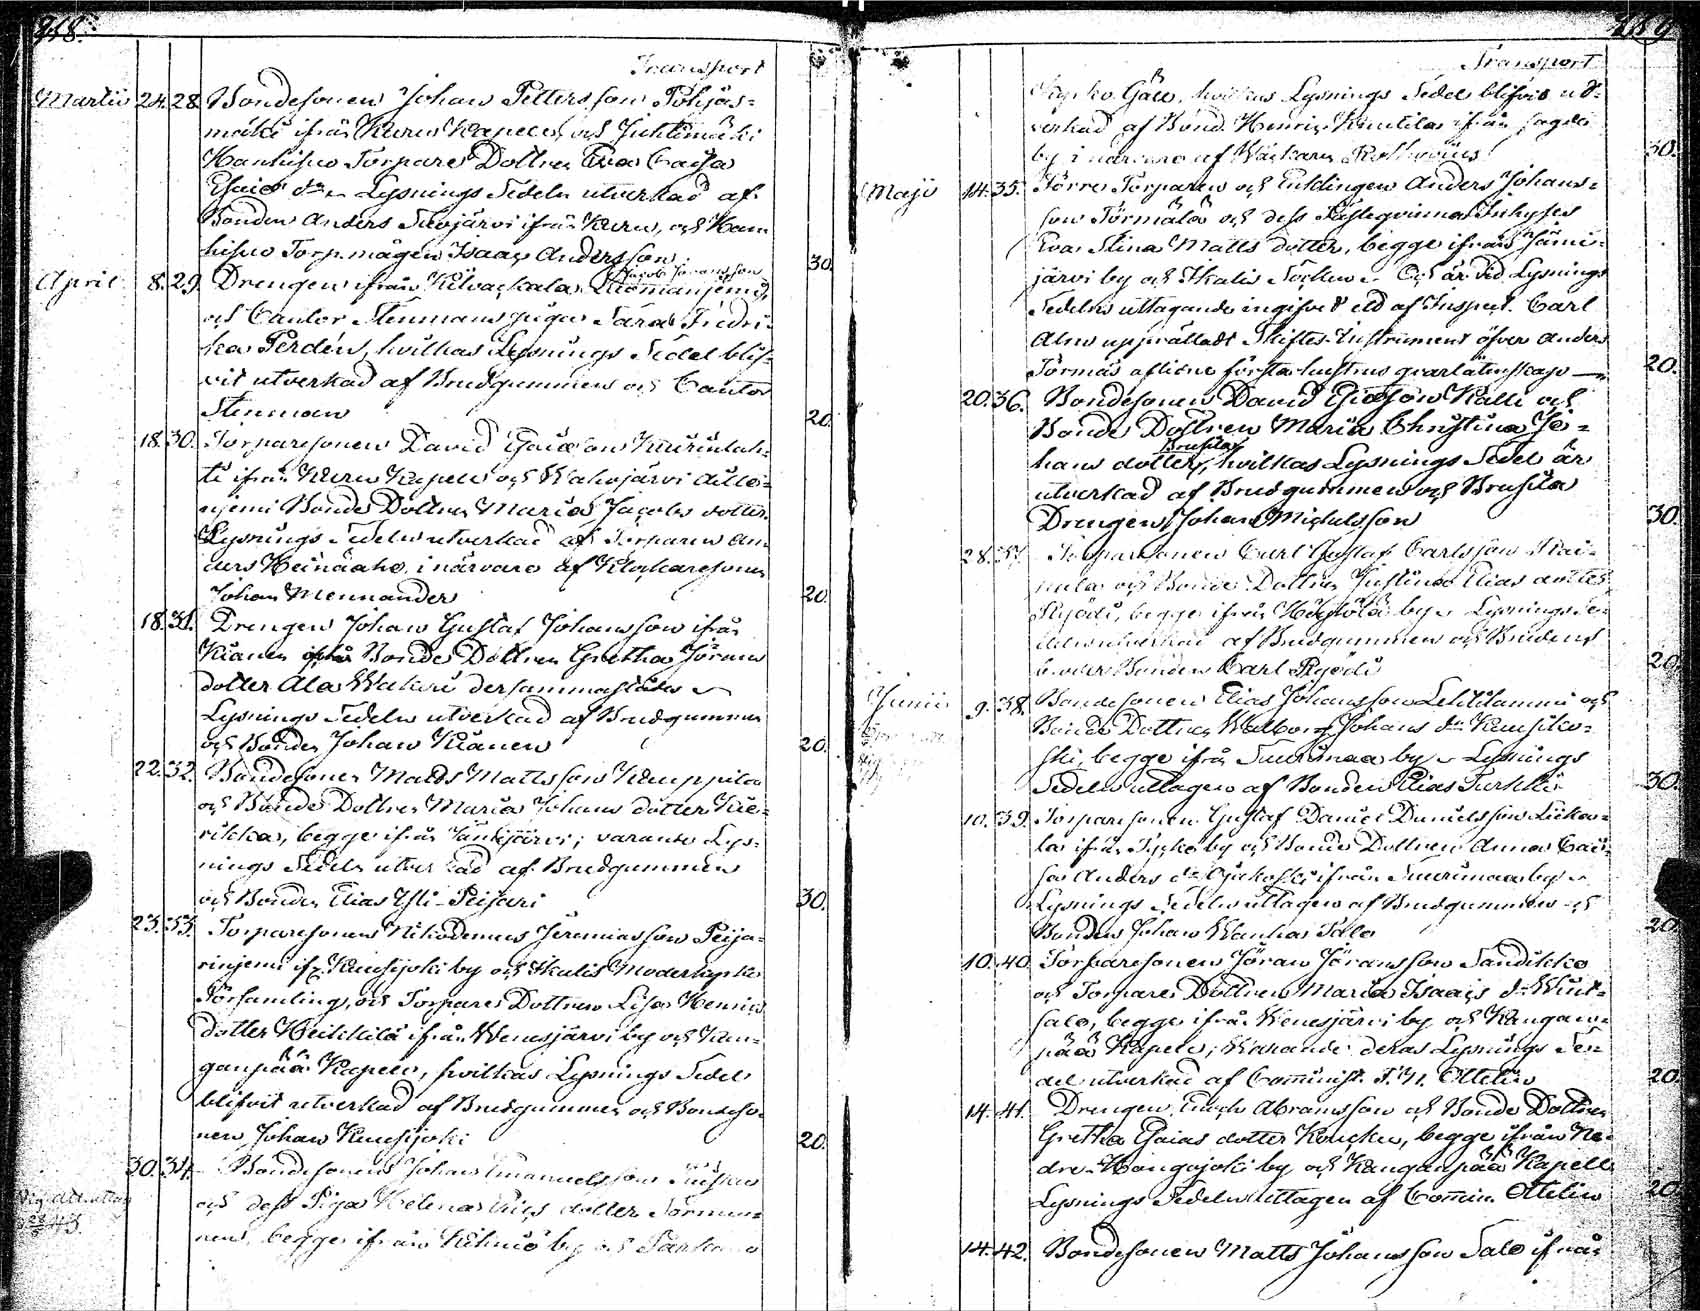 218.
Transport
Martii 24. 28. Bondesonen Johan Petters son Pohjas=
mäki ifrån Kuru Kapell, och Jichtimäki
Hanhisuo Torpare Dottren Eva Caisa
Esaies dr. Lysnings Sedeln utverkad af
Bonden Anders Suojärvi ifrån Kuru, och Han
hisuo Torp. mågen Isaac Andersson. 30.
Jacob Joransson
April 8. 29. Drengen ifrån Kilvackala
och Cantor Stenmans piga Sara Fredri-
ka Perdén, hvilkas Lysnings Sedel blif-
vit utverkad af Brudgummen och Cantor
Stenman 20.
18. 30. Torparesonen David Esaiæson
ti ifrån Kuru Kapell och Wahojärvi
njemi Bonde Dottren Maria Jacobs dotter
Lysnings Sedeln utverkad af Torparen An-
ders Heinäaho, i närvaro af Klockaresonen
Johan Mennander 20.
18. 31. Drengen Johan Gustaf Johansson ifrån
Kianen Bonde Dottren Gretha Jörans
dotter Ala Wakeri dersammastädes
Lysnings Sedeln utverkad af Brudgummen
och Bonden Johan Kianen 20.
22. 32. Bondesonen Matts Mattsson Kamppila
och Bonde Dottren Maria Johans dotter Kie-
rikka, begge ifrån Jämijärvi; varande Lys-
nings Sedeln utverkad af Brudgummen
och Bonden Elias Yli-Peijari 30.
23. 33. Torparesonen Nikodemus Jeremiasson Peija-
rinjemi ifr. Kuusijoki by och Ikalis Moderkyrko
Församling, och Torpare Dottren Lisa Henrics
dotter Heikkilä ifrån Wenesjärvi by och Kan-
ganpää Kapell, hvilkas Lysnings Sedel
blifvit utverkad af Brudgummen och Bondeso-
nen Johan Kuusijoki 20.
30. 34. Bondesonen Johan Emanuelsson
och dess Piga Helena Erics dotter Sormu-
nen, begge ifrån Kihniö by och Parkano
219
Transport
Kyrko Gäll, hvilkas Lysnings Sedel blifvit ut-
verkad af Bond. Henric Knuutila ifrån sagde
by i närvaro af Wackaren 30.
Maji 14. 35. Förre Torparen och Enklingen Anders Johans=
son Törmälä och dess Fästeqvinna Inhyses
Eva Stina Matts dotter, begge ifrån Jämi-
järvi by och Ikalis Socken. Och är vid Lysnings
Sedelns uttagande ingifvet ett af Inspect. Carl
Alm upprättadt Skiftes-Instrument öfver Anders
Törmäs aflidne första hustrus qvarlåtenskap — 20.
20. 36. Bondesonen David Esaiæson Kalli och
Bonde Dottren Maria Christina Jo=
hans dotter Brusila, hvilkas Lysnings Sedel är
utverkad af Brudgummen och Brusila
Drengen Johan Michelsson 30.
28. 37. Torparesonen Carl Gustaf Carlsson
och Bonde Dottren Justina Elias dotter
Ryödi, begge ifrån by. Lysnings Se-
deln utverkad af Brudgummen och Brudens
broder Bonden Carl Ryödi 20.
Junii 9. 38. Bondesonen Elias Johansson Lehtilammi och
Bonde Dottren Walborg Johans dr.
begge ifrån Suurimaa by. Lysnings
Sedeln uttagen af Bonden Elias Turkki 30.
10. 39. Torparesonen Gustaf Daniel Danielsson
ifrån by och Bonde Dottren Anna Cai-
sa Anders dr. ifrån Suurimaa by.
Lysnings Sedeln uttagen af Brudgummen och
Bonden Johan Wanha Salo 20.
10. 40. Torparesonen Jöran Jöransson Sandikko
och Torpare Dottren Maria Isaacs dr.
salo, begge ifrån Wenesjärvi by och Kangan-
pää Kapell; Warande deras Lysnings Se-
del utverkad af Comminist. Ottelin 20.
14. 41. Drengen Enoch Abramsson och Bonde Dottren
Gretha Esaias dotter begge ifrån Ne-
dre-Hongojoki by och Kanganpää Kapell
Lysnings Sedeln uttagen af Commin. Ottelin 20.
14. 42. Bondesonen Matts Johansson Salo ifrån